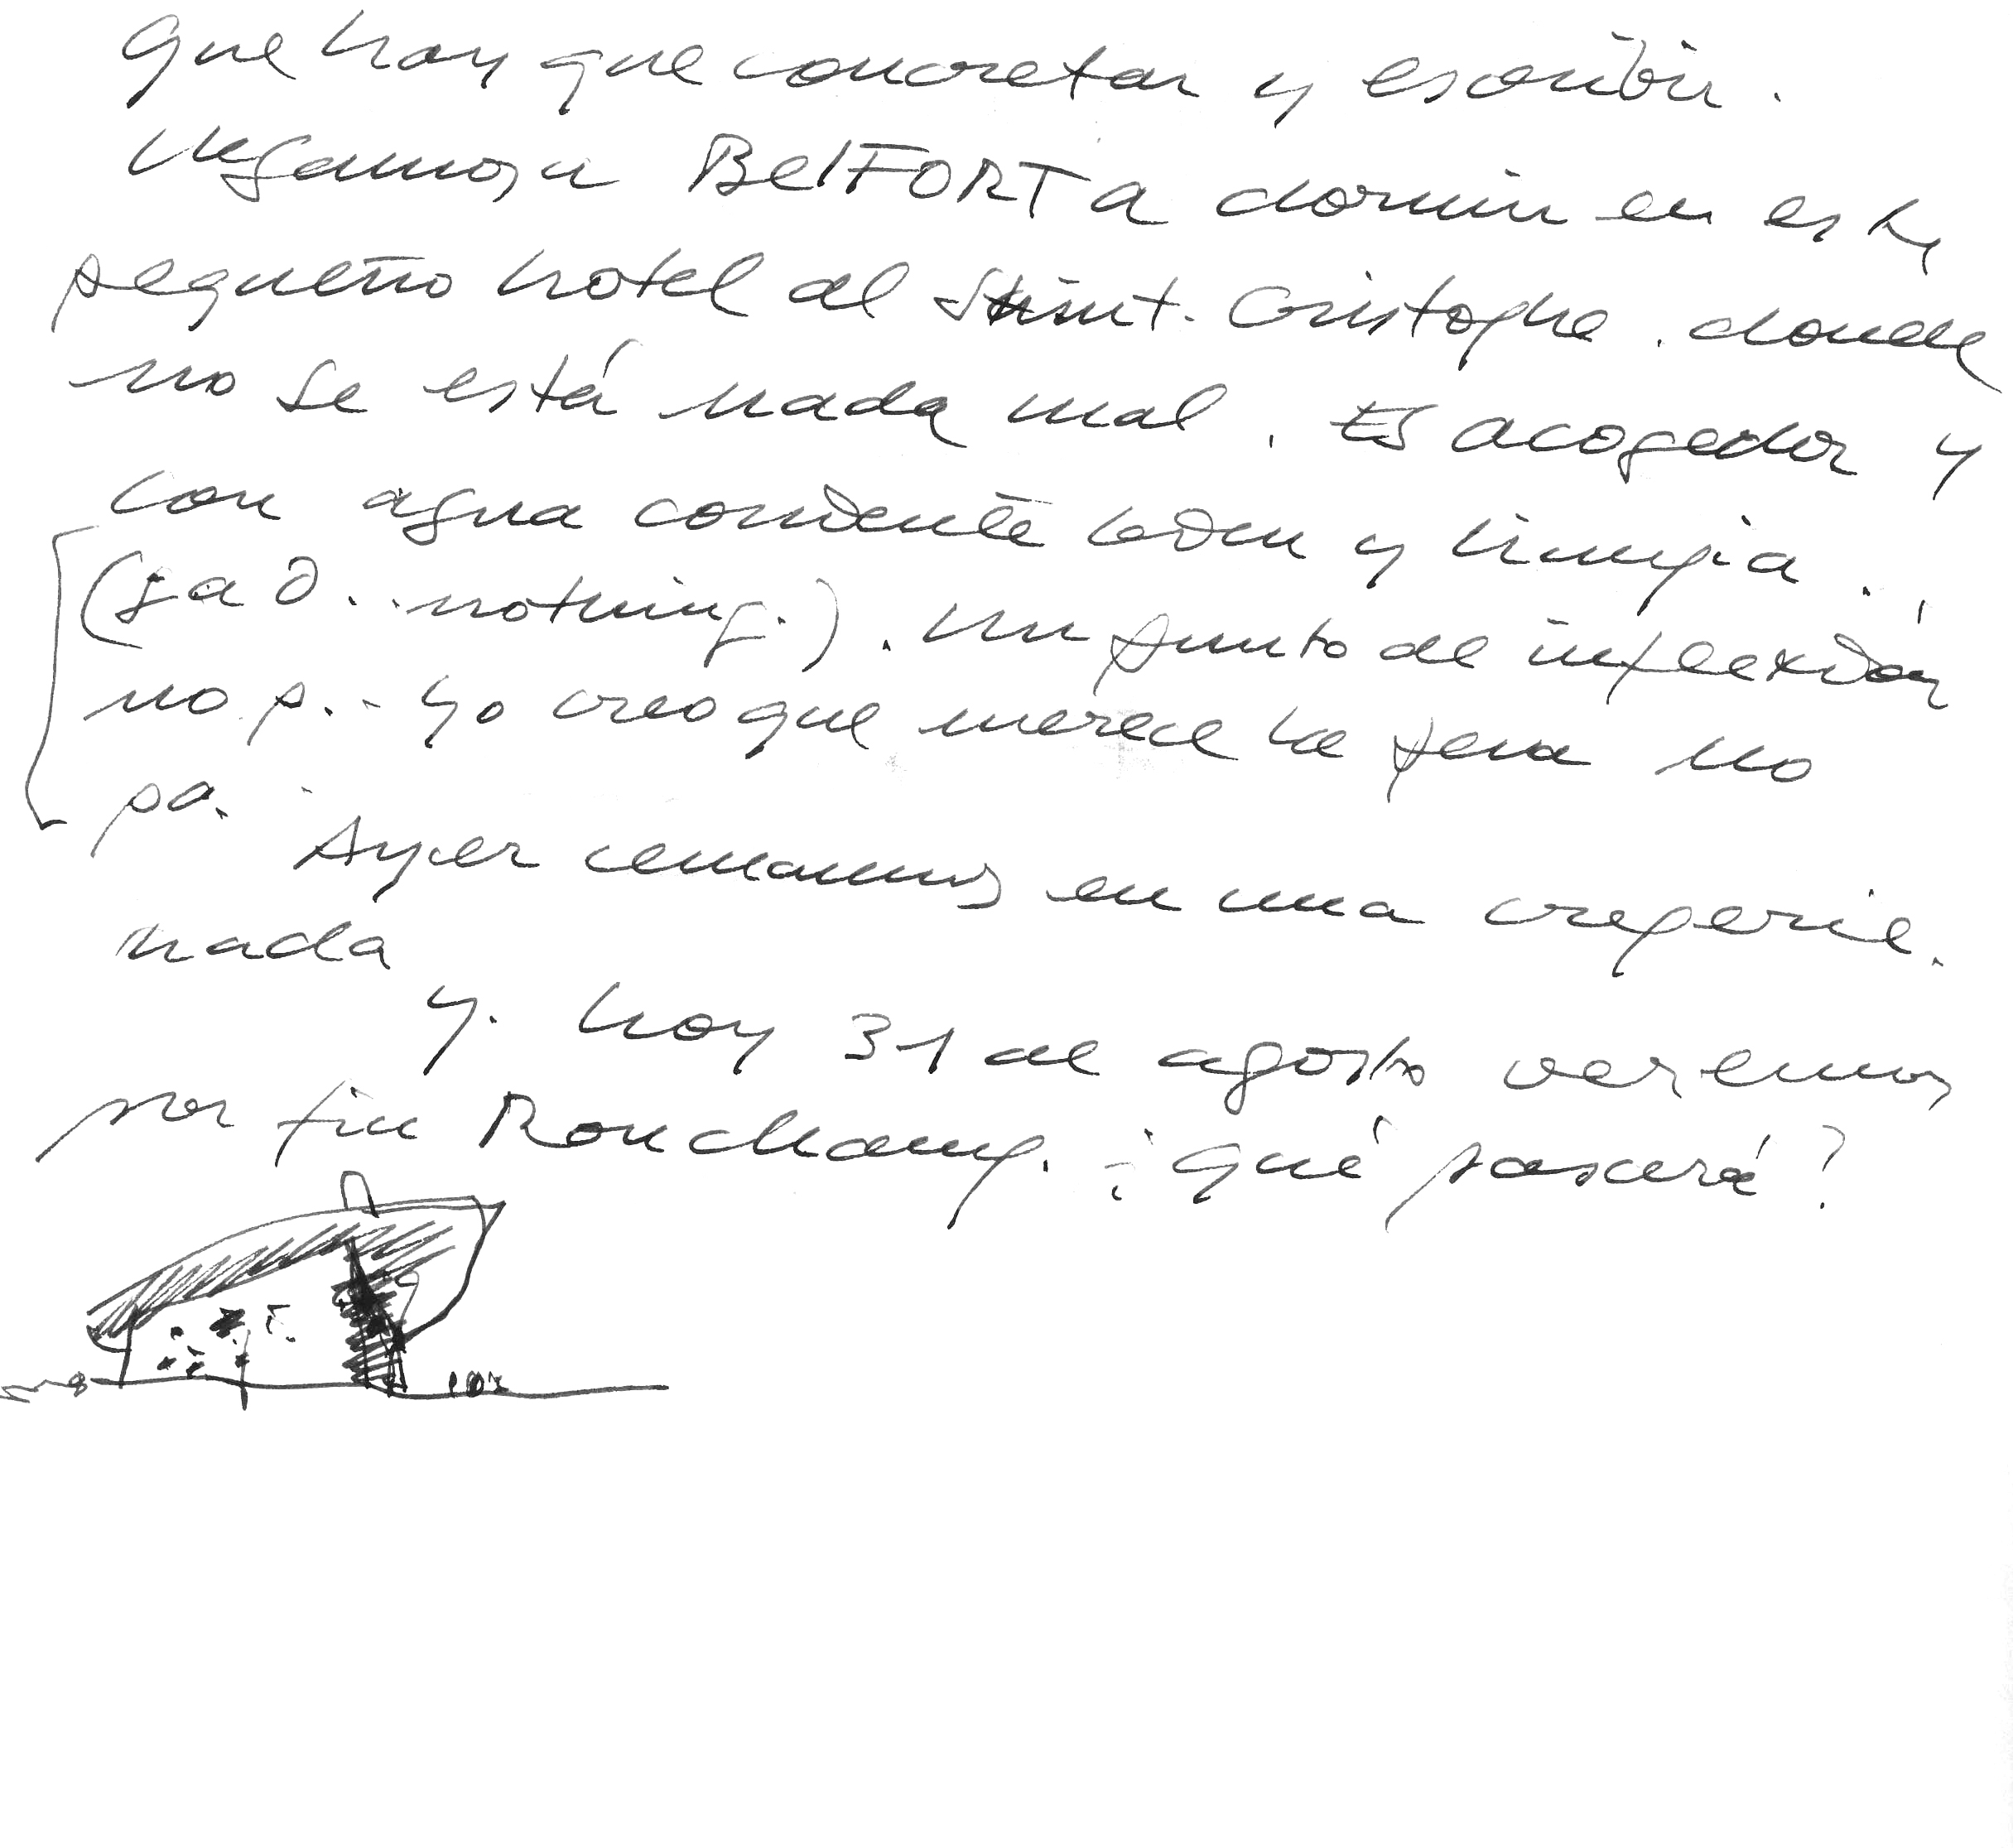 que hay que concretar y escribir.
llegamos a BelFORT a dormir en este
pequeño hotel de Saint. Cristophe. donde
no se está nada mal. ES acogedor y
con agua corriente y limpia.
(. . nothing.). Un punto de inflexión
no p. . yo creo que merece la pena no
pa.
Ayer cenamos en una creperie.
nada
y. hoy 31 de agosto veremos
por fin Ronchamp. ¿qué pasará?